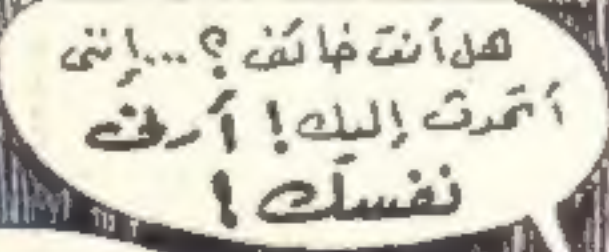 هل أنت خائف ؟ ...إنني
أتحدث إليك ! أرني
نفسك !